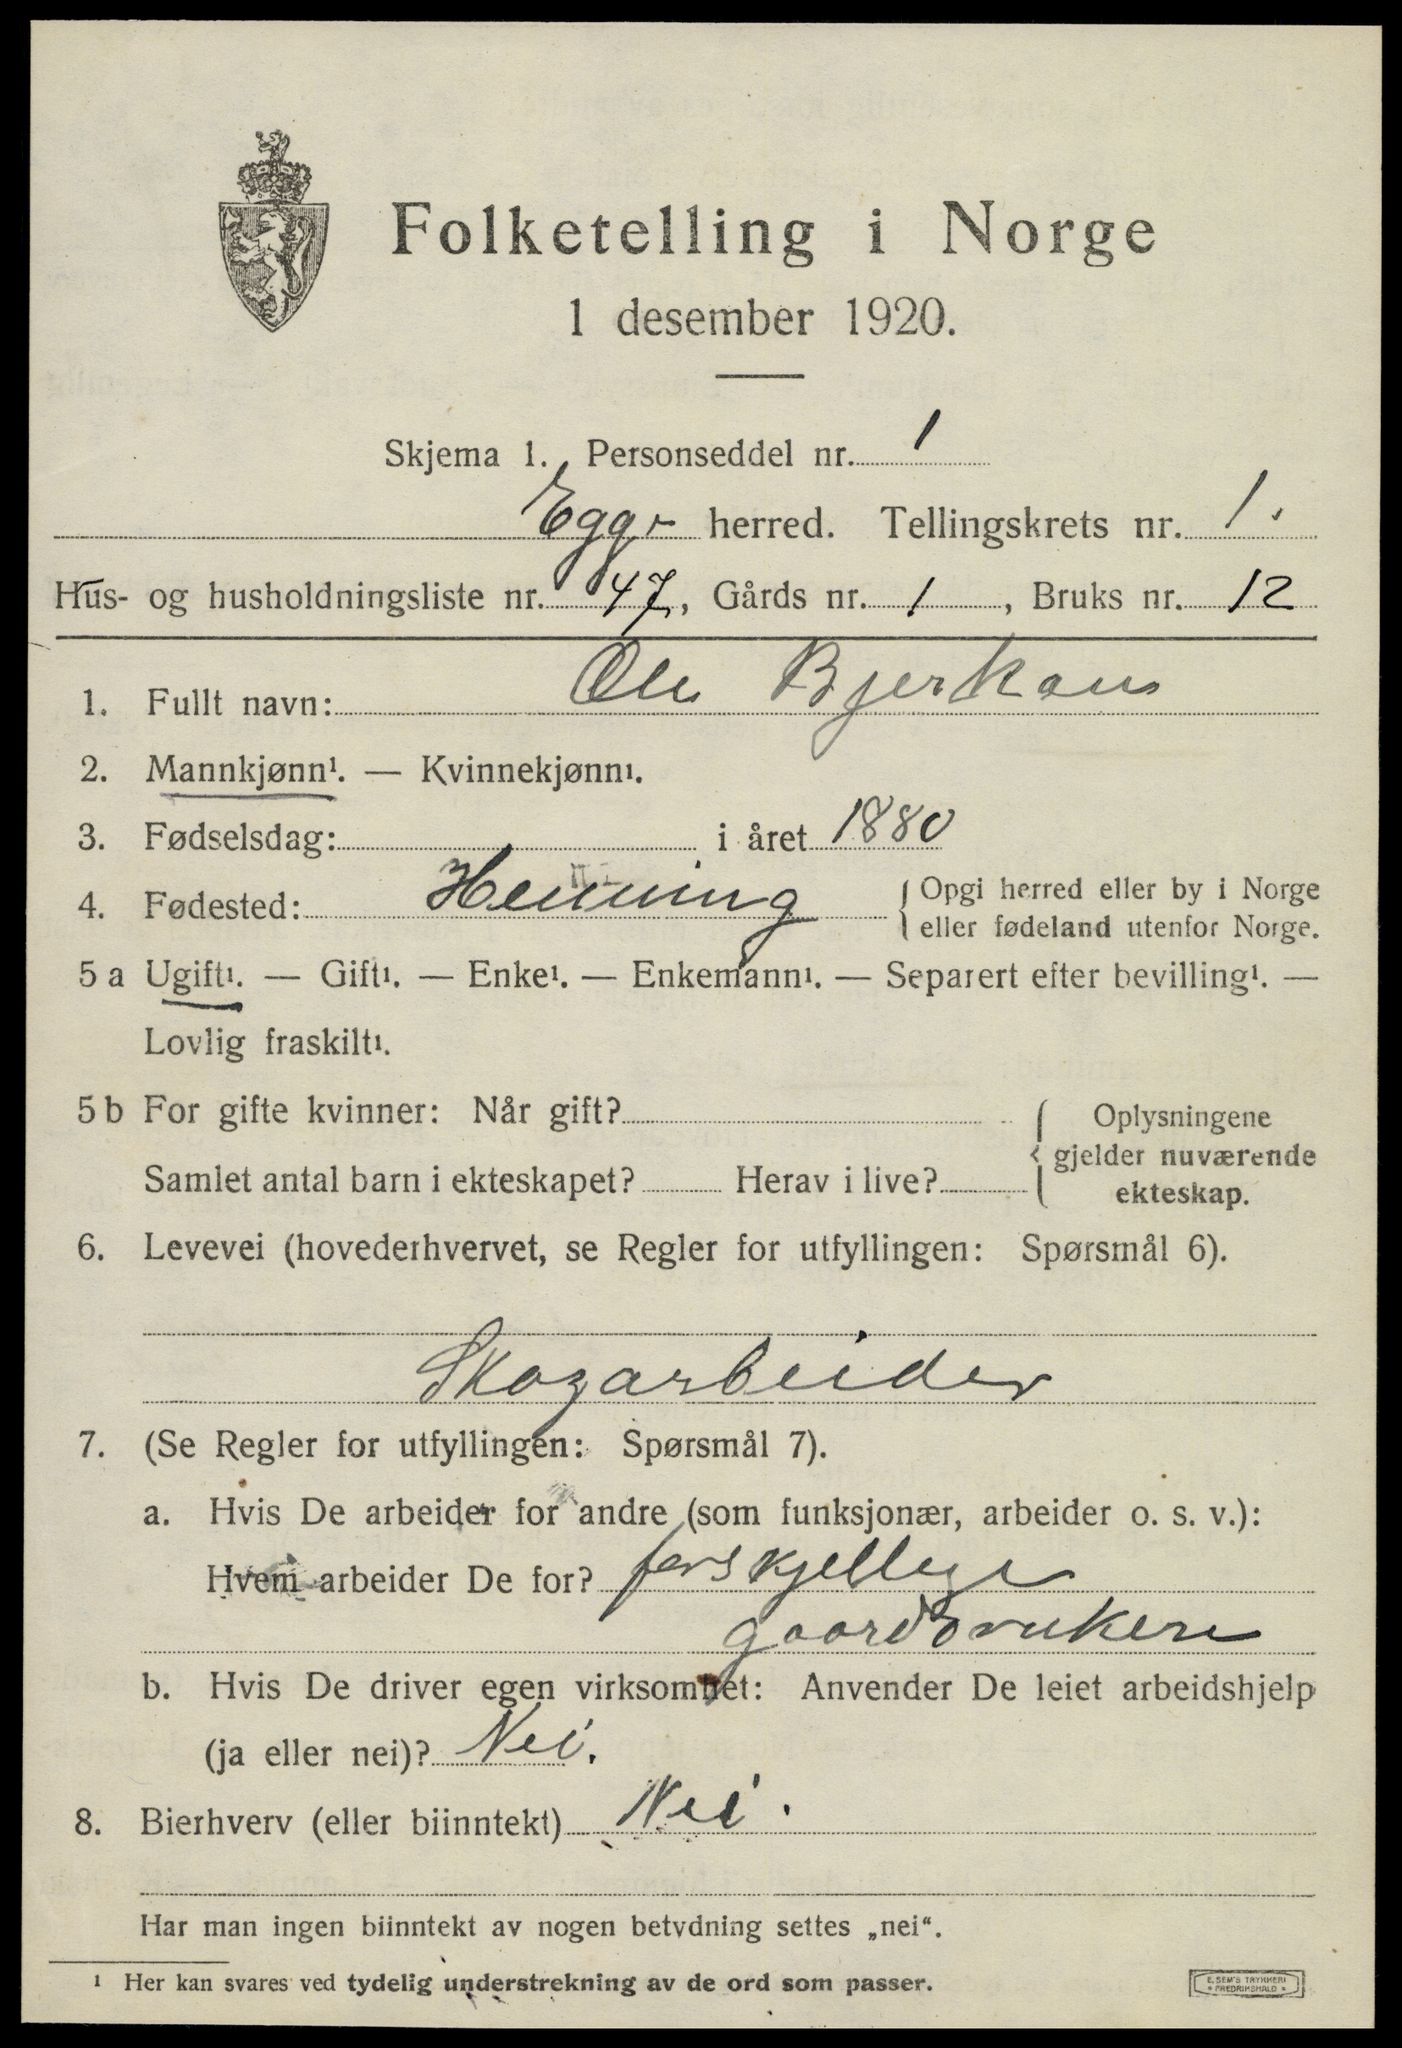 Folketelling i Norge
1 desember 1920.
Skjema 1. Personseddel nr. 1
Egge herred. Tellingskrets nr. 1.
Hus- og husholdningsliste nr. 47, Gårds nr. 1, Bruks nr. 12
1. Fullt navn: Ole Bjerkan
2. Mannkjønn¹. — Kvinnekjønn¹.
3. Fødselsdag: i året 1880
4. Fødested: Henning { Opgi herred eller by i Norge
eller fødeland utenfor Norge.
5 a Ugift¹. — Gift¹. — Enke¹. — Enkemann¹. — Separert efter bevilling¹. —
Lovlig fraskilt¹.
5 b For gifte kvinner: Når gift? { Oplysningene
gjelder nuværende
ekteskap.
Samlet antal barn i ekteskapet? Herav i live?
6. Levevei (hovederhvervet, se Regler for utfyllingen: Spørsmål 6).
Skogarbeider
7. (Se Regler for utfyllingen: Spørsmål 7).
a. Hvis De arbeider for andre (som funksjonær, arbeider o. s. v.):
Hvem arbeider De for? forskjellige
gaardbrukere
b. Hvis De driver egen virksomhet: Anvender De leiet arbeidshjelp
(ja eller nei)? Nei.
8. Bierhverv (eller biinntekt) Nei.
Har man ingen biinntekt av nogen betydning settes „nei“.
¹ Her kan svares ved tydelig understrekning av de ord som passer.
E. SEM'S TRYKKERI
* FREDRIKSHALD *